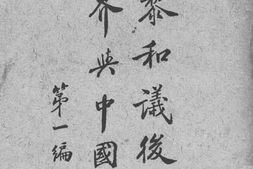 黎和議後
界與中國
第一編